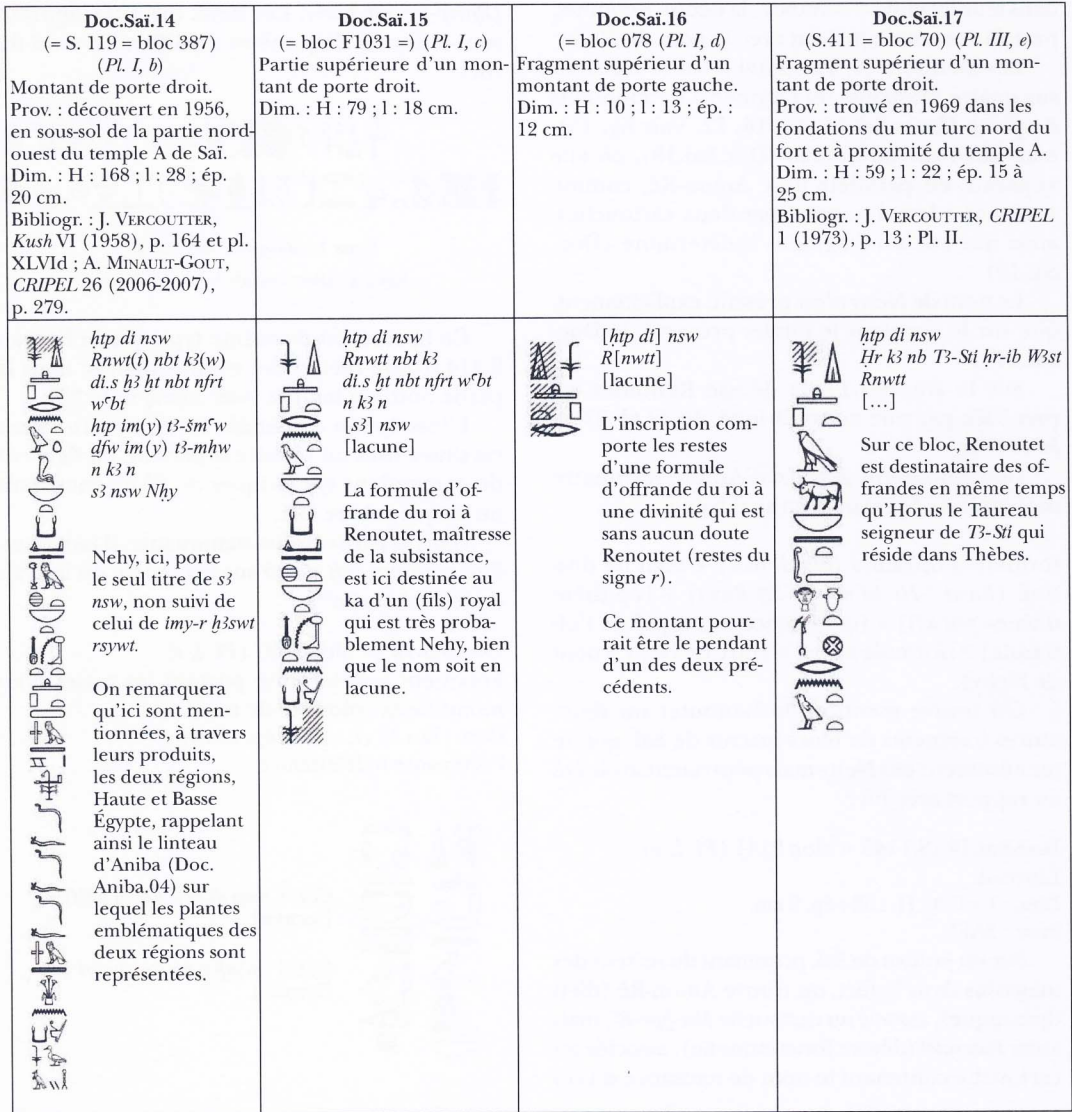 Doc.Saï.14
(= S. 119 = bloc 387)
(Pl. I, b)
Montant de porte droit.
Prov. : découvert en 1956,
en sous-sol de la partie nord-
ouest du temple A de Saï.
Dim. : H : 168 ; l : 28 ; ép.
20 cm.
Bibliogr. : J. VERCOUTTER,
Kush VI (1958), p. 164 et pl.
XLVId ; A. MINAULT-GOUT,
CRIPEL 26 (2006-2007),
p. 279.
Doc.Saï.15
(= bloc F1031 =) (Pl. I, c)
Partie supérieure d'un mon-
tant de porte droit.
Dim. : H : 79 ; l : 18 cm.
Doc.Saï.16
(= bloc 078 (Pl. I, d)
Fragment supérieur d'un
montant de porte gauche.
Dim. : H : 10 ; l : 13 ; ép. :
12 cm.
Doc.Saï.17
(S.411 = bloc 70) (Pl. III, e)
Fragment supérieur d'un mon-
tant de porte droit.
Prov. : trouvé en 1969 dans les
fondations du mur turc nord du
fort et à proximité du temple A.
Dim. : H : 59 ; l : 22 ; ép. 15 à
25 cm.
Bibliogr. : J. VERCOUTTER, CRIPEL
1 (1973), p. 13 ; Pl. II.
ḥtp di nsw
Rnwt(t) nbt kȝ(w)
di.s ḫȝ ḫt nbt nfrt
wꜥbt
ḥtp im(y) tȝ-šmꜥw
ḏfw im(y) tȝ-mḥw
n kȝ n
sȝ nsw Nḥy
Nehy, ici, porte
le seul titre de sȝ
nsw, non suivi de
celui de imy-r ḫȝswt
rsywt.
On remarquera
qu'ici sont men-
tionnées, à travers
leurs produits,
les deux régions,
Haute et Basse
Égypte, rappelant
ainsi le linteau
d'Aniba (Doc.
Aniba.04) sur
lequel les plantes
emblématiques des
deux régions sont
représentées.
ḥtp di nsw
Rnwtt nbt kȝ
di.s ḫt nbt nfrt wꜥbt
n kȝ n
[sȝ] nsw
[lacune]
La formule d'of-
frande du roi à
Renoutet, maîtresse
de la subsistance,
est ici destinée au
ka d'un (fils) royal
qui est très proba-
blement Nehy, bien
que le nom soit en
lacune.
[ḥtp di] nsw
R[nwtt]
[lacune]
L'inscription com-
porte les restes
d'une formule
d'offrande du roi à
une divinité qui est
sans aucun doute
Renoutet (restes du
signe r).
Ce montant pour-
rait être le pendant
d'un des deux pré-
cédents.
ḥtp di nsw
Ḥr kȝ nb Tȝ-Sti ḥr-ib Wȝst
Rnwtt
[...]
Sur ce bloc, Renoutet
est destinataire des of-
frandes en même temps
qu'Horus le Taureau
seigneur de Tȝ-Sti qui
réside dans Thèbes.